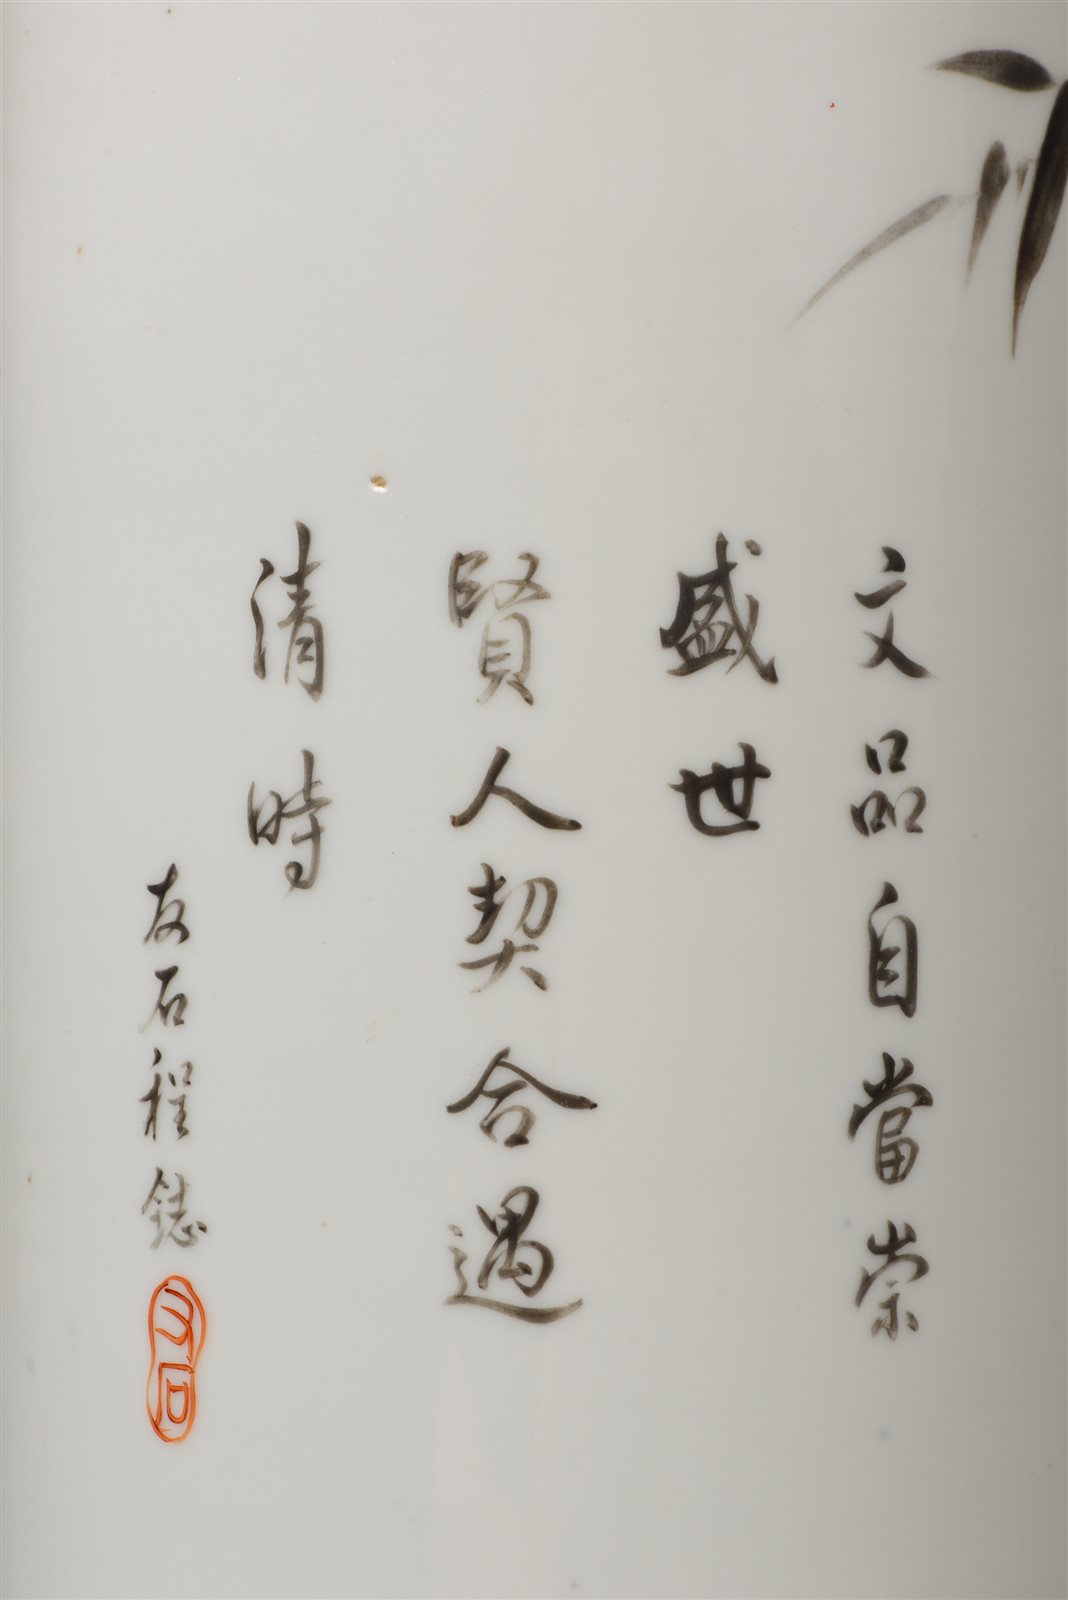 文品自當崇
盛世
賢人契合遇
清時
友石程鋕
友石